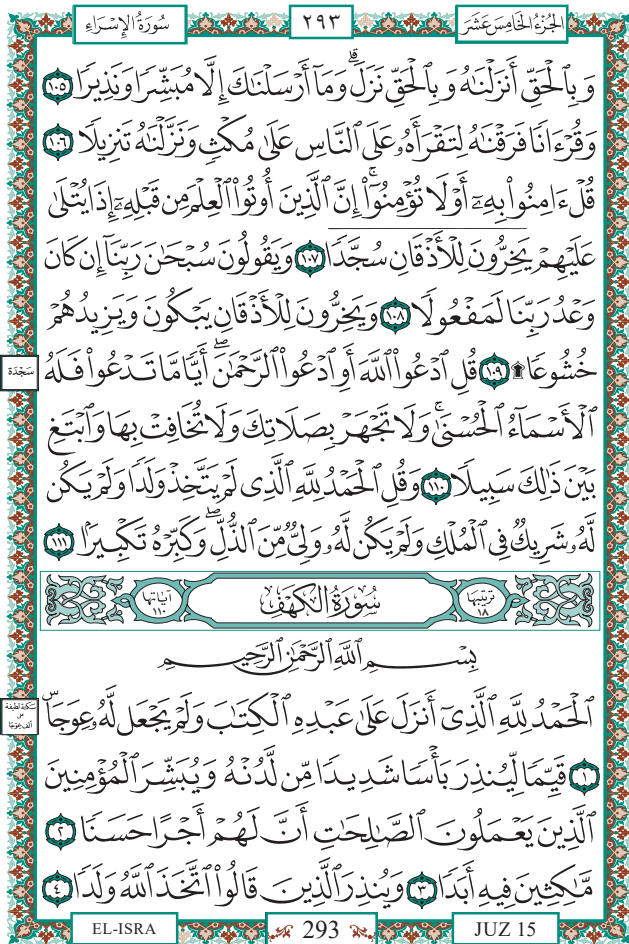 سُورَةُ الإِسْرَاءِ ٢٩٣ الجُزْءُ الخَامِسَ عَشَرَ
وَبِٱلْحَقِّ أَنزَلْنَٰهُ وَبِٱلْحَقِّ نَزَلَ ۗ وَمَآ أَرْسَلْنَٰكَ إِلَّا مُبَشِّرًا وَنَذِيرًا ١٠٥
وَقُرْءَانًا فَرَقْنَٰهُ لِتَقْرَأَهُۥ عَلَى ٱلنَّاسِ عَلَىٰ مُكْثٍ وَنَزَّلْنَٰهُ تَنزِيلًا ١٠٦
قُلْ ءَامِنُوا۟ بِهِۦٓ أَوْ لَا تُؤْمِنُوٓا۟ ۚ إِنَّ ٱلَّذِينَ أُوتُوا۟ ٱلْعِلْمَ مِن قَبْلِهِۦٓ إِذَا يُتْلَىٰ
عَلَيْهِمْ يَخِرُّونَ لِلْأَذْقَانِ سُجَّدًا ١٠٧ وَيَقُولُونَ سُبْحَٰنَ رَبِّنَآ إِن كَانَ
وَعْدُ رَبِّنَا لَمَفْعُولًا ١٠٨ وَيَخِرُّونَ لِلْأَذْقَانِ يَبْكُونَ وَيَزِيدُهُمْ
خُشُوعًا ۩ ١٠٩ قُلِ ٱدْعُوا۟ ٱللَّهَ أَوِ ٱدْعُوا۟ ٱلرَّحْمَٰنَ ۖ أَيًّا مَّا تَدْعُوا۟ فَلَهُ
سَجْدَة
ٱلْأَسْمَآءُ ٱلْحُسْنَىٰ ۚ وَلَا تَجْهَرْ بِصَلَاتِكَ وَلَا تُخَافِتْ بِهَا وَٱبْتَغِ
بَيْنَ ذَٰلِكَ سَبِيلًا ١١٠ وَقُلِ ٱلْحَمْدُ لِلَّهِ ٱلَّذِى لَمْ يَتَّخِذْ وَلَدًا وَلَمْ يَكُن
لَّهُۥ شَرِيكٌ فِى ٱلْمُلْكِ وَلَمْ يَكُن لَّهُۥ وَلِىٌّ مِّنَ ٱلذُّلِّ ۖ وَكَبِّرْهُ تَكْبِيرًۢا ١١١
ترتيبها ١٨ سُورَةُ الكَهْفِ آياتها ١١٠
بِسْمِ ٱللَّهِ ٱلرَّحْمَٰنِ ٱلرَّحِيمِ
ٱلْحَمْدُ لِلَّهِ ٱلَّذِىٓ أَنزَلَ عَلَىٰ عَبْدِهِ ٱلْكِتَٰبَ وَلَمْ يَجْعَل لَّهُۥ عِوَجَا ۜ
سكتة لطيفة
على
ألف عوجا
١ قَيِّمًا لِّيُنذِرَ بَأْسًا شَدِيدًا مِّن لَّدُنْهُ وَيُبَشِّرَ ٱلْمُؤْمِنِينَ
ٱلَّذِينَ يَعْمَلُونَ ٱلصَّٰلِحَٰتِ أَنَّ لَهُمْ أَجْرًا حَسَنًا ٢
مَّٰكِثِينَ فِيهِ أَبَدًا ٣ وَيُنذِرَ ٱلَّذِينَ قَالُوا۟ ٱتَّخَذَ ٱللَّهُ وَلَدًا ٤
EL-ISRA 293 JUZ 15